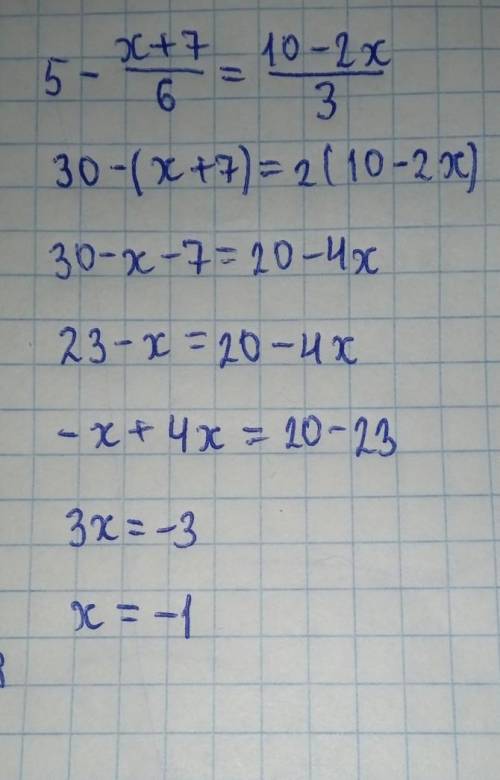 5 - (x+7)/6 = (10-2x)/3
30-(x+7)=2(10-2x)
30-x-7=20-4x
23-x=20-4x
-x+4x=20-23
3x=-3
x=-1